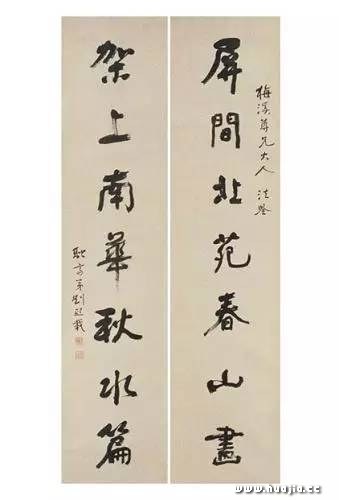 梅溪尊兄大人 法鑒
屏間北苑春山畫
架上南華秋水篇
融齋弟劉熙載
www.huajia.cc